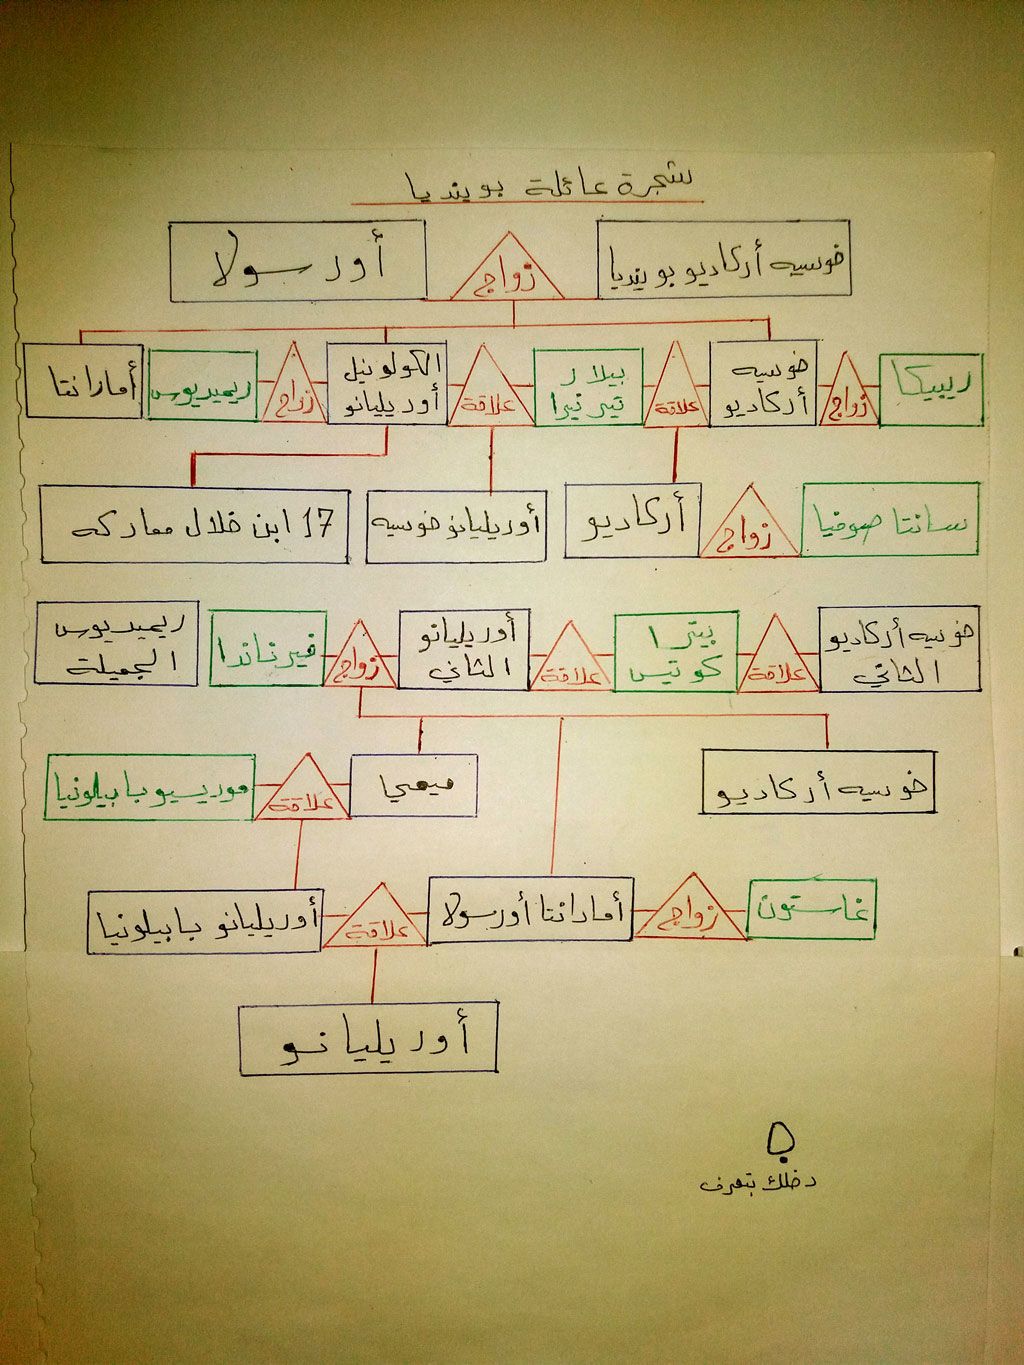 شجرة عائلة بوينديا
خوسيه أركاديو بوينديا
زواج
أورسولا
ريبيكا
زواج
خوسيه
أركاديو
علاقة
بيلار
تيرنيرا
علاقة
الكولونيل
أوريليانو
زواج
ريميديوس
أمارانتا
سانتا صوفيا
زواج
أركاديو
أوريليانو خوسيه
17 ابن خلال معاركه
خوسيه أركاديو
الثاني
علاقة
بيترا
كوتيس
علاقة
أوريليانو
الثاني
زواج
فيرناندا
ريميديوس
الجميلة
خوسيه أركاديو
ميمي
علاقة
موريسيو بابيلونيا
غاستون
زواج
أمارانتا أورسولا
علاقة
أوريليانو بابيلونيا
أوريليانو
دخلك بتعرف